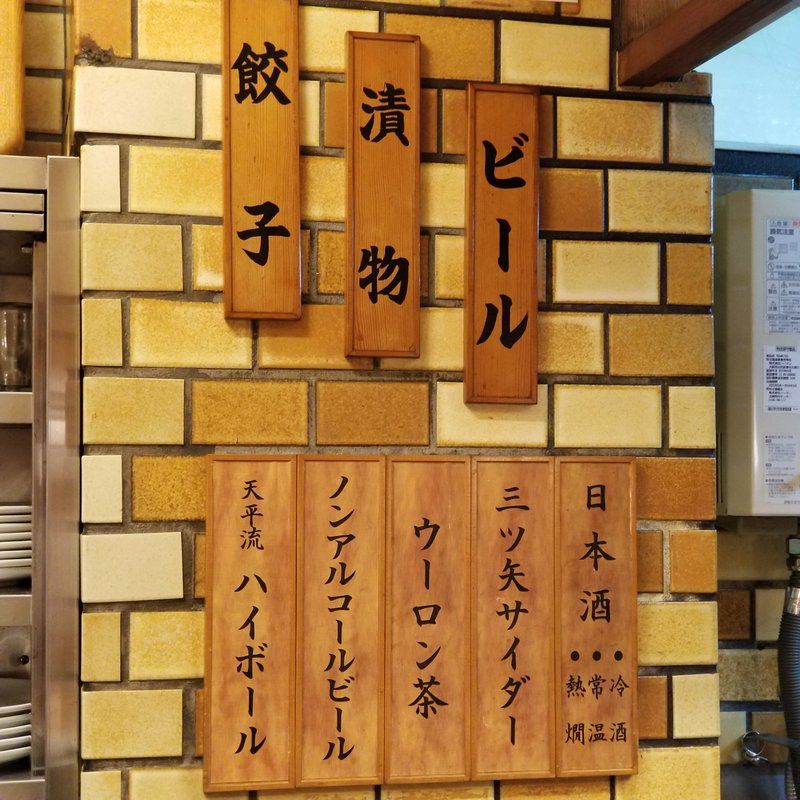 ビール
漬物
餃子
日本酒
・冷酒
・常温
・熱燗
三ツ矢サイダー
ウーロン茶
ノンアルコールビール
天平流 ハイボール
換気注意